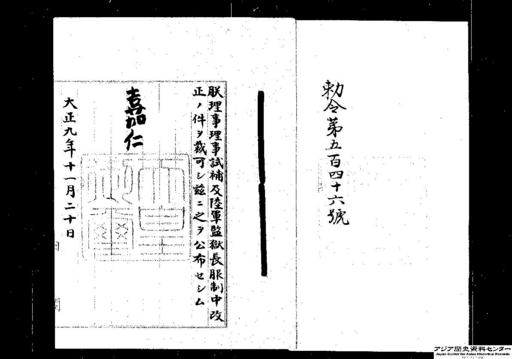 勅令第五百四十六號
朕理事理事試補及陸軍監獄長服制中改
正ノ件ヲ裁可シ茲ニ之ヲ公布セシム
嘉仁
大正九年十一月二十日
アジア歴史資料センター
Japan Center for Asian Historical Records